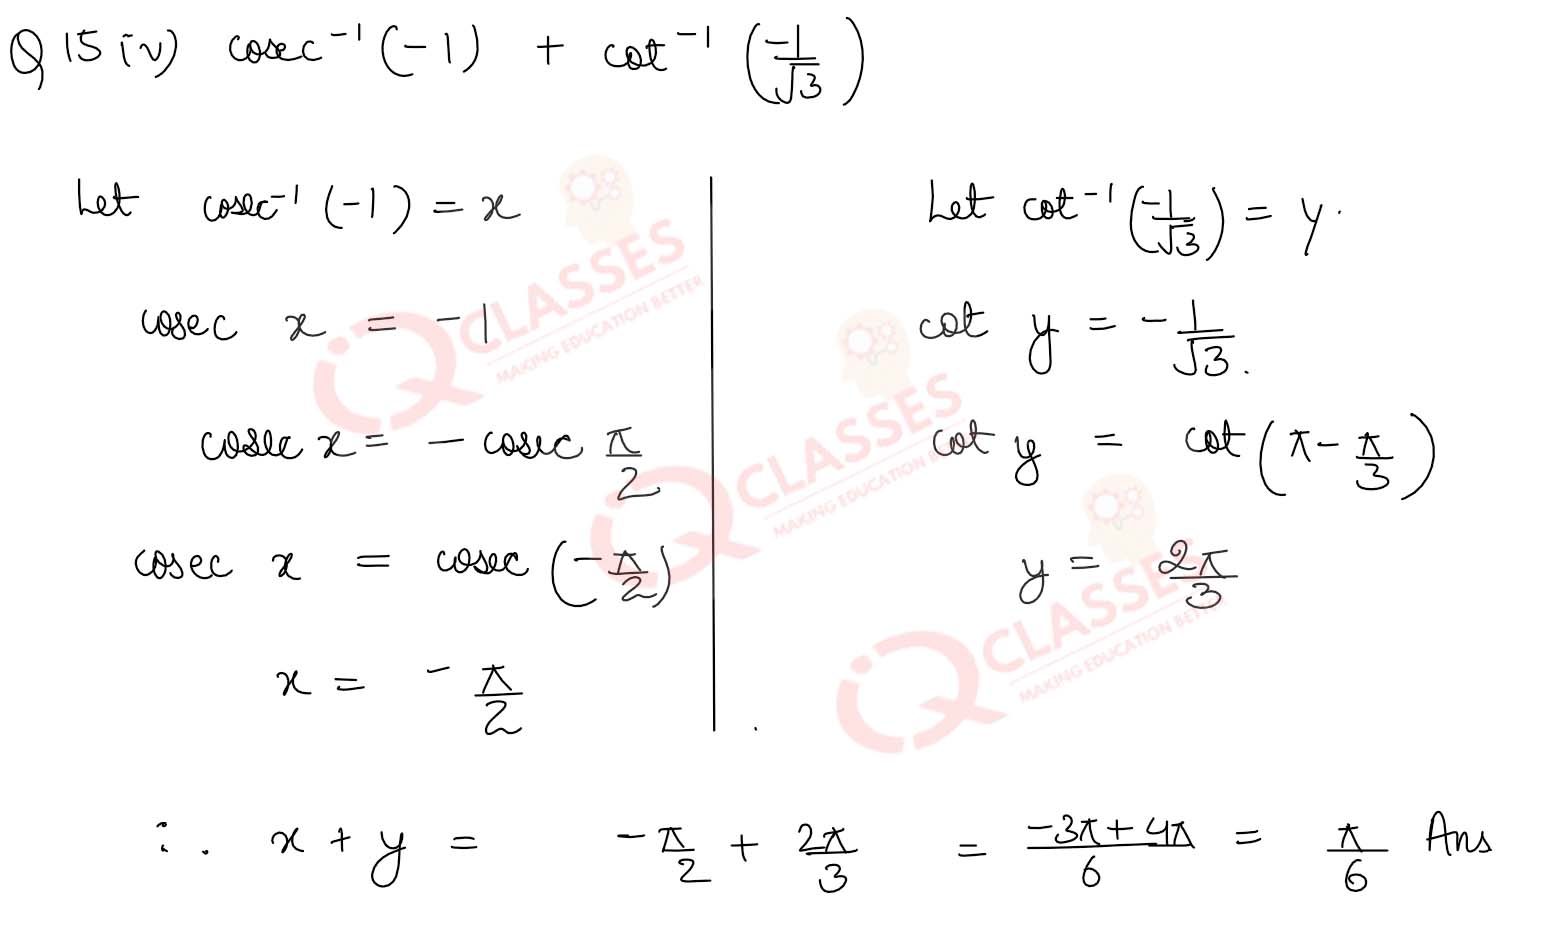 Q 15 iv) cosec⁻¹(-1) + cot⁻¹(-1/√3)
Let cosec⁻¹(-1) = x
cosec x = -1
cosec x = - cosec π/2
cosec x = cosec (-π/2)
x = - π/2
Let cot⁻¹(-1/√3) = y.
cot y = - 1/√3.
cot y = cot (π - π/3)
y = 2π/3
∴ x + y = -π/2 + 2π/3 = -3π+4π/6 = π/6 Ans
IQ CLASSES
MAKING EDUCATION BETTER
IQ CLASSES
MAKING EDUCATION BETTER
IQ CLASSES
MAKING EDUCATION BETTER